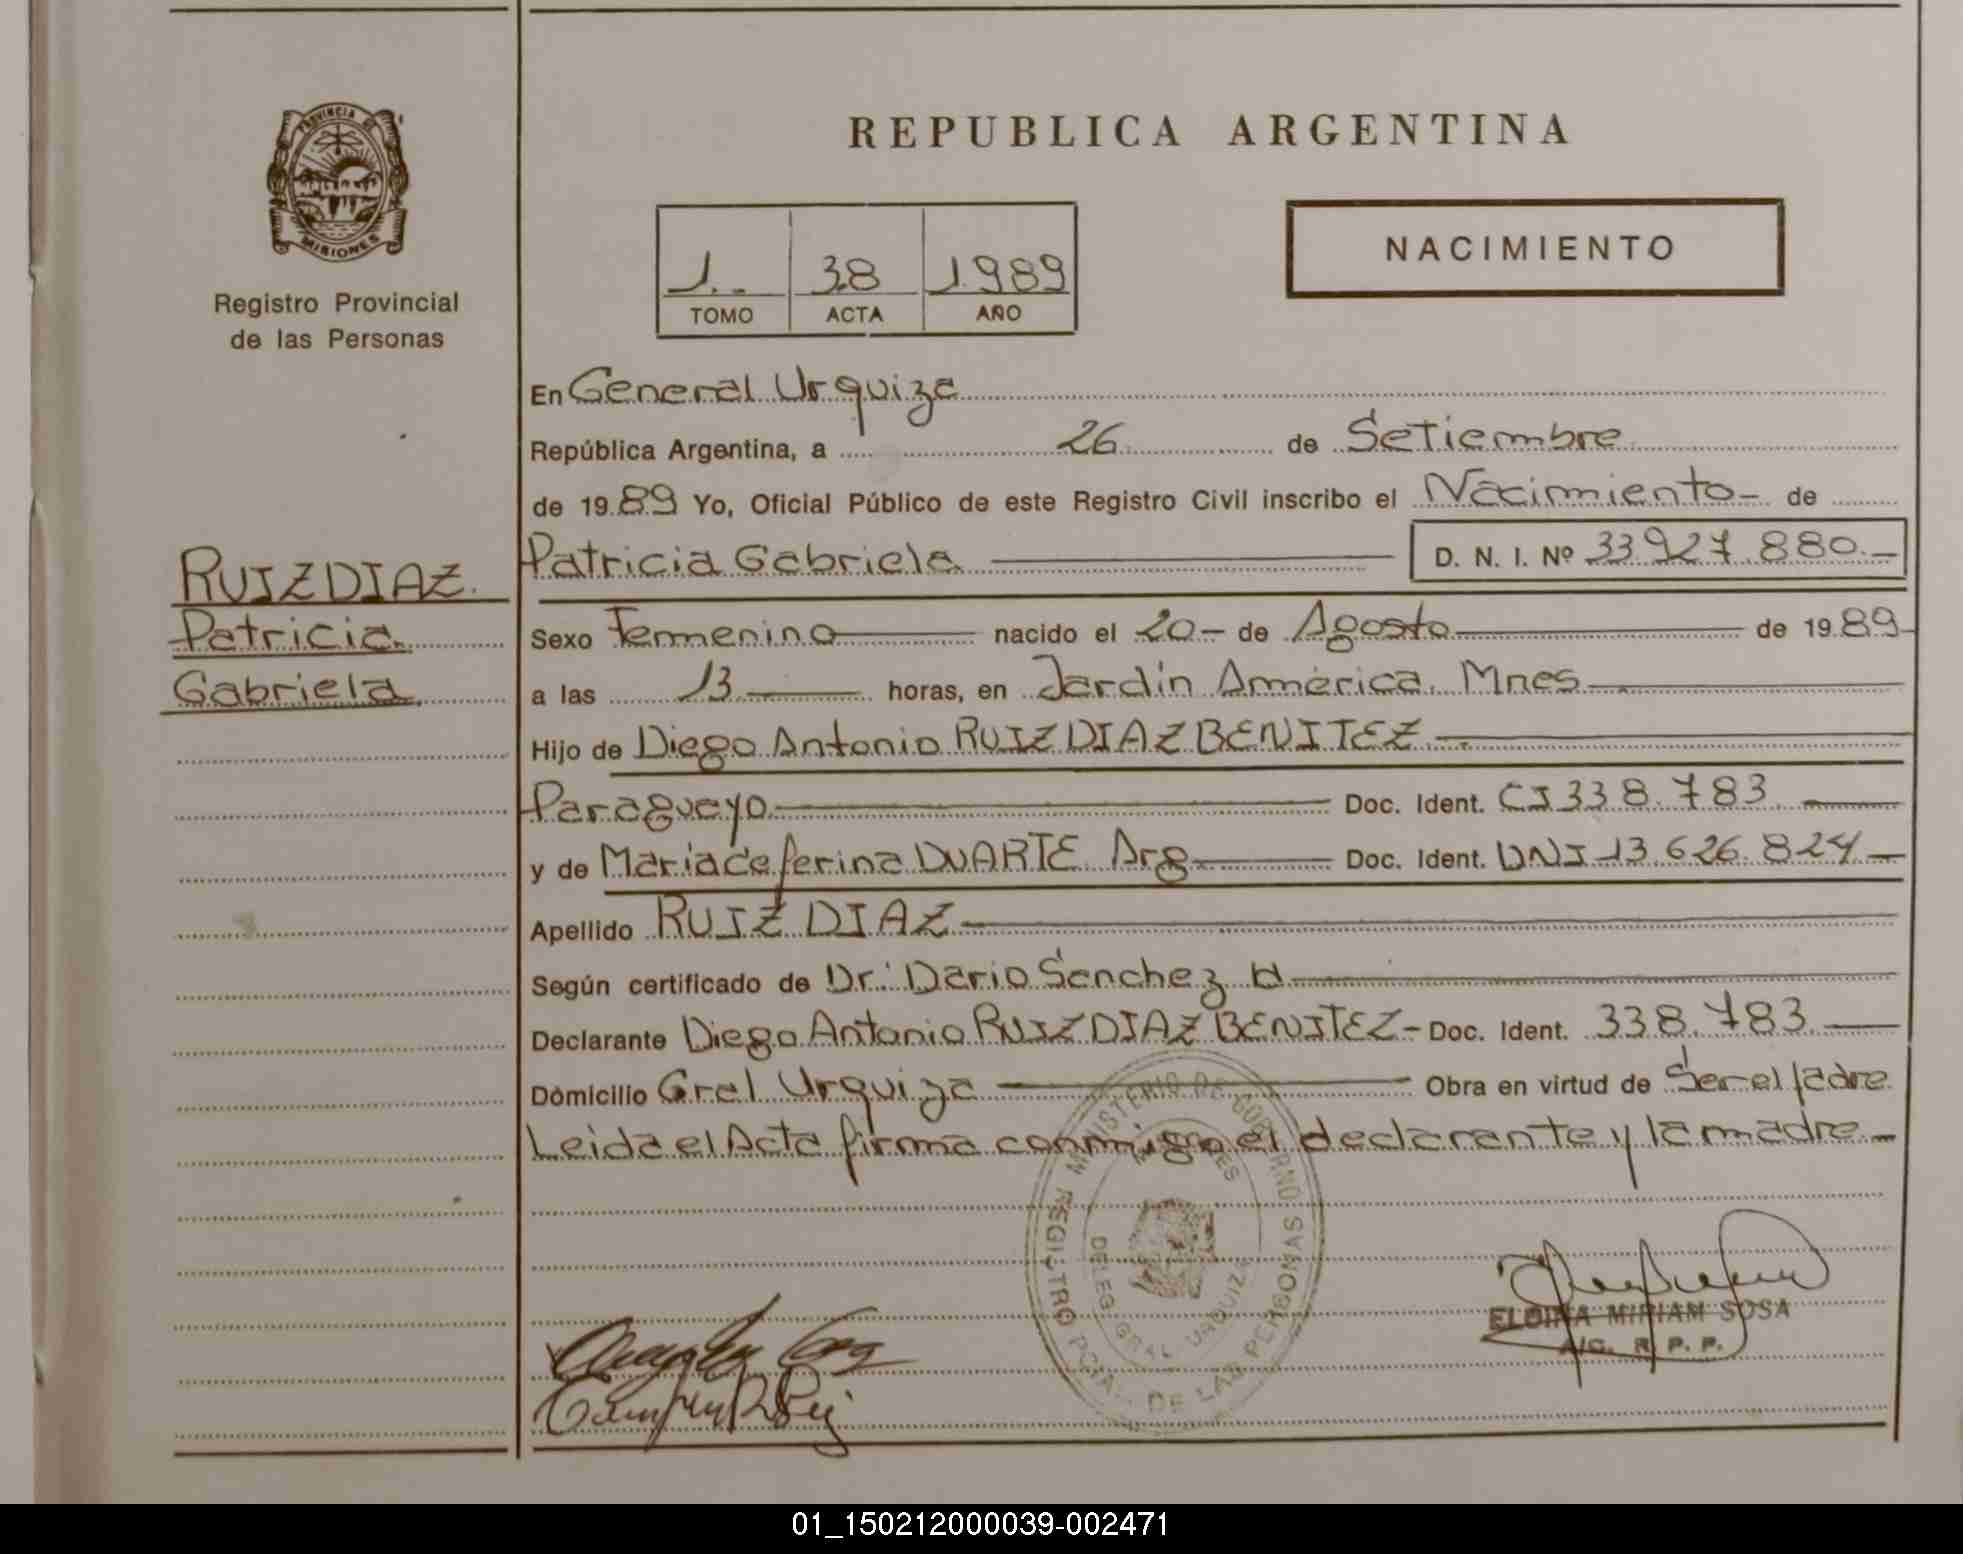 PROVINCIA DE
MISIONES
Registro Provincial
de las Personas
RUIZ DIAZ.
Patricia
Gabriela
REPUBLICA ARGENTINA
1.. 38 1989
TOMO ACTA AÑO
NACIMIENTO
En General Urquiza
República Argentina, a 26 de Setiembre
de 19 89 Yo, Oficial Público de este Registro Civil inscribo el Nacimiento - de
Patricia Gabriela D. N. I. Nº 33.927.880.-
Sexo Femenino nacido el 20 - de Agosto de 19 89
a las 13 horas, en Jardín América. Mnes
Hijo de Diego Antonio RUIZ DIAZ BENITEZ
Paraguayo Doc. Ident. CI 338.783
y de Maria Ceferina DUARTE Arg Doc. Ident. DNI 13.626.824
Apellido RUIZ DIAZ
Según certificado de Dr. Dario Sanchez H
Declarante Diego Antonio RUIZ DIAZ BENITEZ - Doc. Ident. 338.783
Domicilio Gral Urquiza Obra en virtud de Ser el Padre
Leida el Acta firma conmigo el declarante y la madre
MINISTERIO DE GOBIERNO
REGISTRO PCIAL. DE LAS PERSONAS
DELEG. GRAL. URQUIZA
ELOINA MIRIAM SOSA
A/C. R. P. P.
01_150212000039-002471